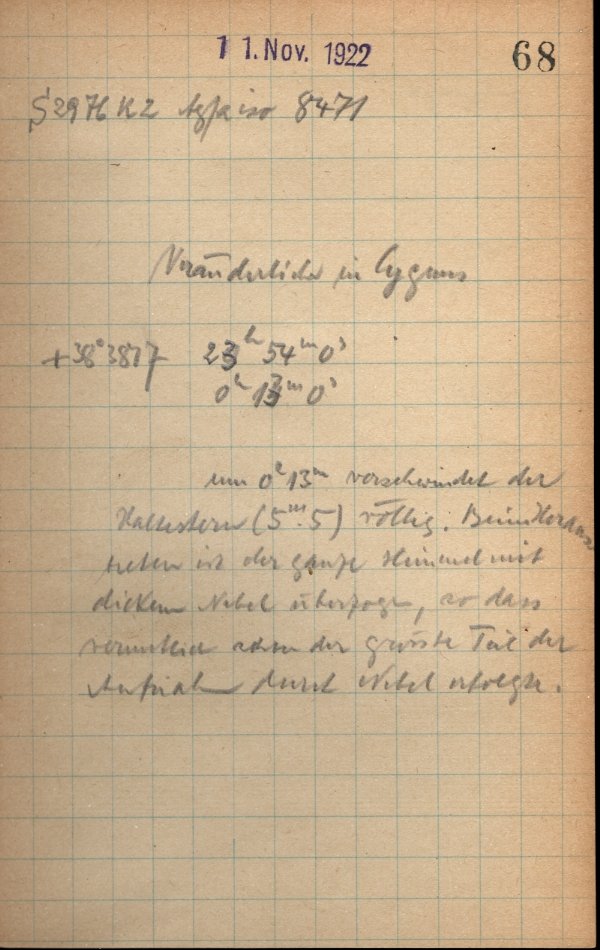 1 1. Nov. 1922
68
S 2976 K2 Agfa iso 8471
Veränderliche in Cygnus
+38°3817 23ʰ 54ᵐ 0ˢ
0ʰ 13ᵐ 0ˢ
um 0ʰ13ᵐ verschwindet der
Haltestern (5ᵐ.5) völlig. Beim Heraus
treten ist der ganze Himmel mit
dickem Nebel überzogen, so dass
vermutlich schon der grösste Teil der
Aufnahme durch Nebel erfolgte.